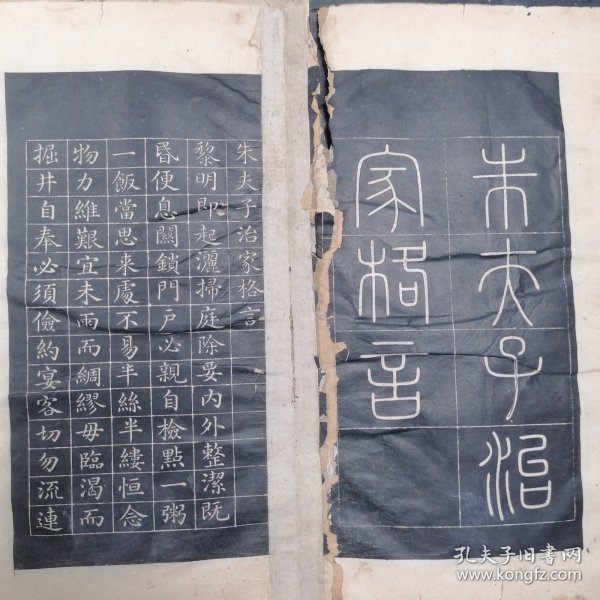 朱夫子治
家格言
朱夫子治家格言
黎明即起灑掃庭除要内外整潔既
昬便息關鎖門户必親自檢點一粥
一飯當思来處不易半絲半縷恒念
物力維艱宜未雨而綢繆毋臨渴而
掘井自奉必須儉約宴客切勿流連
孔夫子旧书网
www.kongfz.com